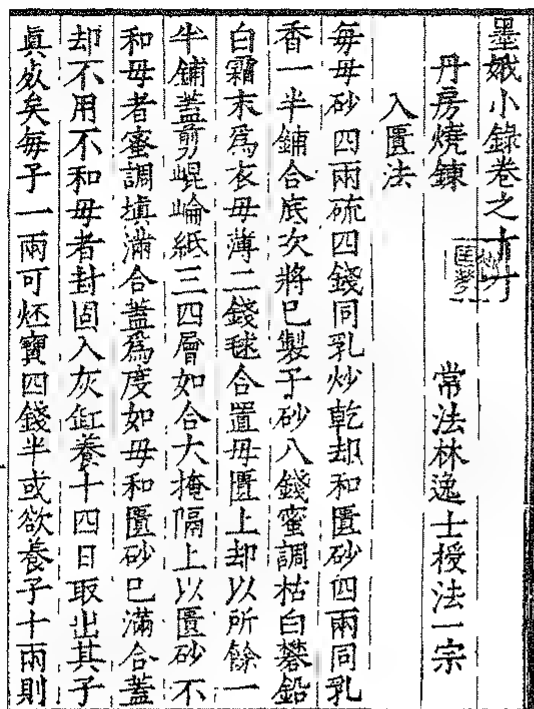 墨娥小錄卷之十
丹房燒鍊 常法林逸士授法一宗
入匱法
每母砂四兩硫四錢同乳炒乾却和匱砂四兩同乳
香一半鋪合底次將已製子砂八錢蜜調枯白礬鉛
白霜末爲衣毋薄二錢毬合置母匱上却以所餘一
半鋪蓋剪崐崘紙三四層如合大掩隔上以匱砂不
和母者蜜調填滿合蓋爲度如母和匱砂已滿合蓋
却不用不和母者封固入灰缸養十四日取出其子
眞𣦸矣每子一兩可炁寶四錢半或欲養子十兩則